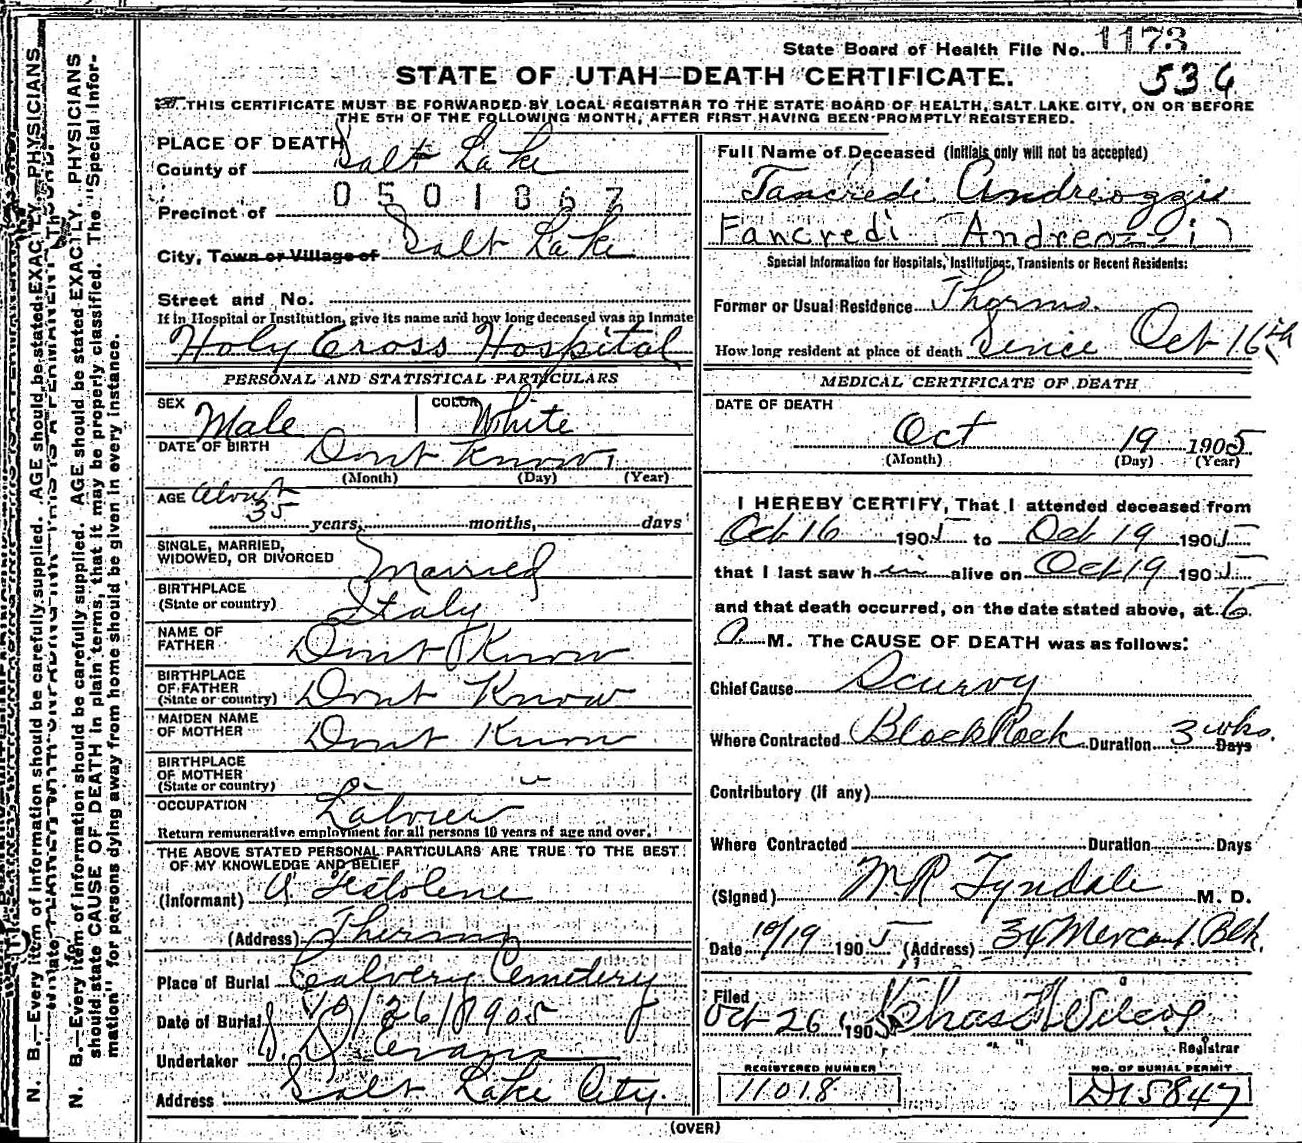 State Board of Health File No. 1173
536
STATE OF UTAH—DEATH CERTIFICATE.
THIS CERTIFICATE MUST BE FORWARDED BY LOCAL REGISTRAR TO THE STATE BOARD OF HEALTH, SALT LAKE CITY, ON OR BEFORE
THE 5TH OF THE FOLLOWING MONTH, AFTER FIRST HAVING BEEN PROMPTLY REGISTERED.
PLACE OF DEATH
County of Salt Lake
0501867
Precinct of
City, Town or Village of Salt Lake
Street and No.
If in Hospital or Institution, give its name and how long deceased was an inmate
Holy Cross Hospital
PERSONAL AND STATISTICAL PARTICULARS
SEX Male COLOR White
DATE OF BIRTH Dont Know
(Month) (Day) (Year)
AGE About
35 years, months, days
SINGLE, MARRIED,
WIDOWED, OR DIVORCED Married
BIRTHPLACE
(State or country) Italy
NAME OF
FATHER Dont Know
BIRTHPLACE
OF FATHER
(State or country) Dont Know
MAIDEN NAME
OF MOTHER Dont Know
BIRTHPLACE
OF MOTHER
(State or country)
OCCUPATION Laborer
Return remunerative employment for all persons 10 years of age and over.
THE ABOVE STATED PERSONAL PARTICULARS ARE TRUE TO THE BEST
OF MY KNOWLEDGE AND BELIEF
(Informant) A
(Address) Thermo
Place of Burial Calvery Cemetery
Date of Burial 10/26/1905
Undertaker S. D. Evans
Address Salt Lake City.
Full Name of Deceased (Initials only will not be accepted)
Tancredi Andreoggi
Fancredi Andreozzi
Special Information for Hospitals, Institutions, Transients or Recent Residents:
Former or Usual Residence Thermo.
How long resident at place of death Since Oct 16th
MEDICAL CERTIFICATE OF DEATH
DATE OF DEATH
Oct 19 1905
(Month) (Day) (Year)
I HEREBY CERTIFY, That I attended deceased from
Oct 16 1905 to Oct 19 1905
that I last saw him alive on Oct 19 1905
and that death occurred, on the date stated above, at 6
A M. The CAUSE OF DEATH was as follows:
Chief Cause Scurvy
Where Contracted Black Rock Duration 3 wks. Days
Contributory (if any)
Where Contracted Duration Days
(Signed) W R Tyndale M. D.
Date 10/19 1905 (Address) 34 Mercant Blk.
Filed
Oct 26 1905 Chas H Wilcox
Registrar
REGISTERED NUMBER
11018
NO. OF BURIAL PERMIT
D15847
(OVER)
N. B.—Every item of information should be carefully supplied. AGE should be stated EXACTLY. PHYSICIANS
should state CAUSE OF DEATH in plain terms, that it may be properly classified. The "Special Infor-
mation" for persons dying away from home should be given in every instance.
N. B.—Every item of information should be carefully supplied. AGE should be stated EXACTLY. PHYSICIANS